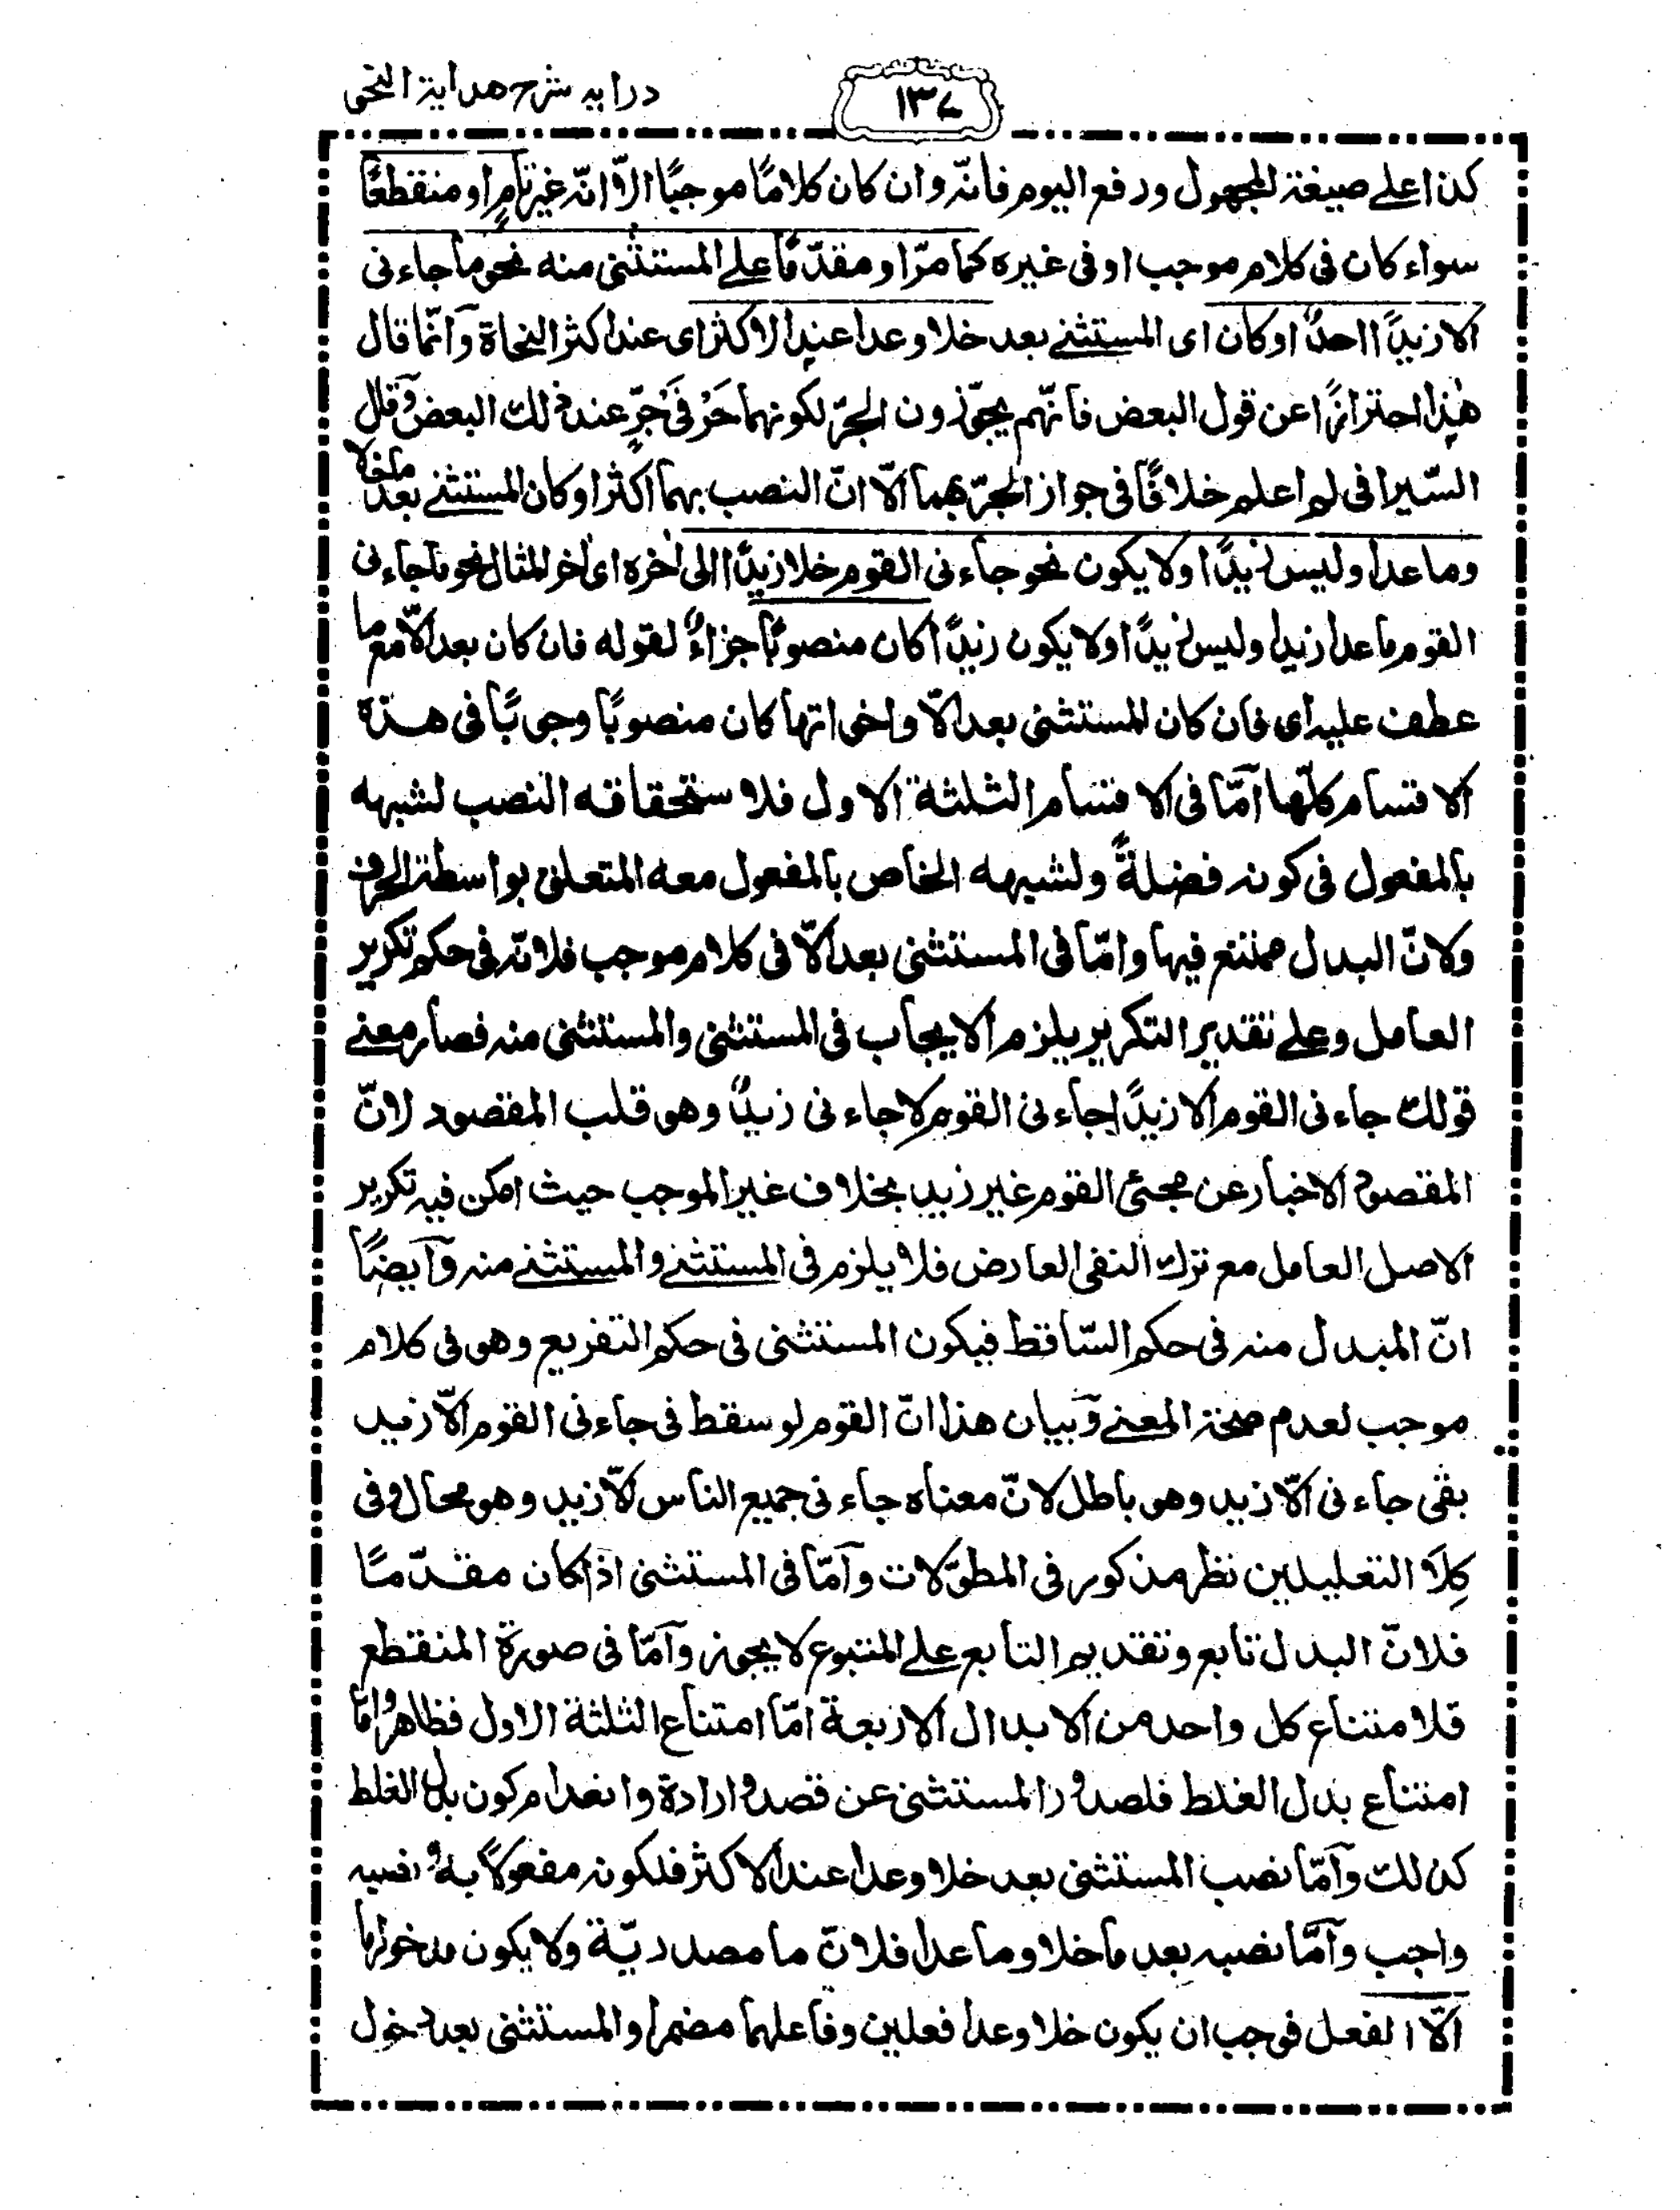 درايه شرح هداية النحو
١٣٧
كذا على صيغة المجهول ورفع اليوم فانّه وان كان كلامًا موجبًا الّا انّه غير تامٍ او منقطعًا
سواء كان فى كلام موجب او فى غيره كما مرّ او مقدّمًا على المستثنى منه نحو ما جاءنى
الا زيدًا احدٌ او كان اى المستثنى بعد خلا وعدا عند الاكثر اى عند اكثر النحاة وانّما قال
هذا احترازًا عن قول البعض فانّهم يجوّزون الجرّ لكونهما حرفَى جرٍّ عند ذلك البعض وقال
السّيرافى لم اعلم خلافًا فى جواز الجرّ بهما الّا انّ النصب بهما اكثر او كان المستثنى بعد ما خلا
وما عدا وليس زيدًا ولا يكون نحو جاءنى القوم خلا زيدًا الى اخره اى اخر المثال نحو ما جاءنى
القوم ما عدا زيدا وليس زيدًا ولا يكون زيدًا كان منصوبًا جزاءٌ لقوله فان كان بعد الّا مع ما
عطف عليه اى فان كان المستثنى بعد الّا واخواتها كان منصوبًا وجوبًا فى هذة
الاقسام كلّها امّا فى الاقسام الثلثة الاول فلاستحقاقه النصب لشبهه
بالمفعول فى كونه فضلةً ولشبهه الخاص بالمفعول معه المتعلق بواسطة الحرف
ولانّ البدل ممتنع فيها وامّا فى المستثنى بعد الّا فى كلام موجب فلانّه فى حكم تكرير
العامل وعلى تقدير التكرير يلزم الايجاب فى المستثنى والمستثنى منه فصار معنى
قولك جاءنى القوم الا زيدًا جاءنى القوم لا جاءنى زيدٌ وهو قلب المقصود لانّ
المقصود الاخبار عن مجئ القوم غير زيد بخلاف غير الموجب حيث امكن فيه تكرير
الاصل العامل مع ترك النفى العارض فلا يلزم فى المستثنى والمستثنى منه وايضًا
انّ المبدل منه فى حكم السّاقط فيكون المستثنى فى حكم التفريع وهو فى كلام
موجب لعدم صحة المعنى وبيان هذا انّ القوم لو سقط فى جاءنى القوم الّا زيد
بقى جاءنى الّا زيد وهو باطل لانّ معناه جاءنى جميع الناس الّا زيد وهو محال وفى
كِلَا التعليلين نظر مذكور فى المطوّلات وامّا فى المستثنى اذا كان مقدّمًا
فلانّ البدل تابع وتقديم التابع على المتبوع لا يجوز وامّا فى صورة المنقطع
فلامتناع كل واحد من الابدال الاربعة امّا امتناع الثلثة الاول فظاهرٌ وامّا
امتناع بدل الغلط فلصدور المستثنى عن قصد وارادة وانعدام كون بدل الغلط
كذلك وامّا نصب المستثنى بعد خلا وعدا عند الاكثر فلكونه مفعولًا به ونصبه
واجب وامّا نصبه بعد ما خلا وما عدا فلانّ ما مصدريّة ولا يكون مدخولها
الّا الفعل فوجب ان يكون خلا وعدا فعلين وفاعلهما مضمرا والمستثنى بعد دخول